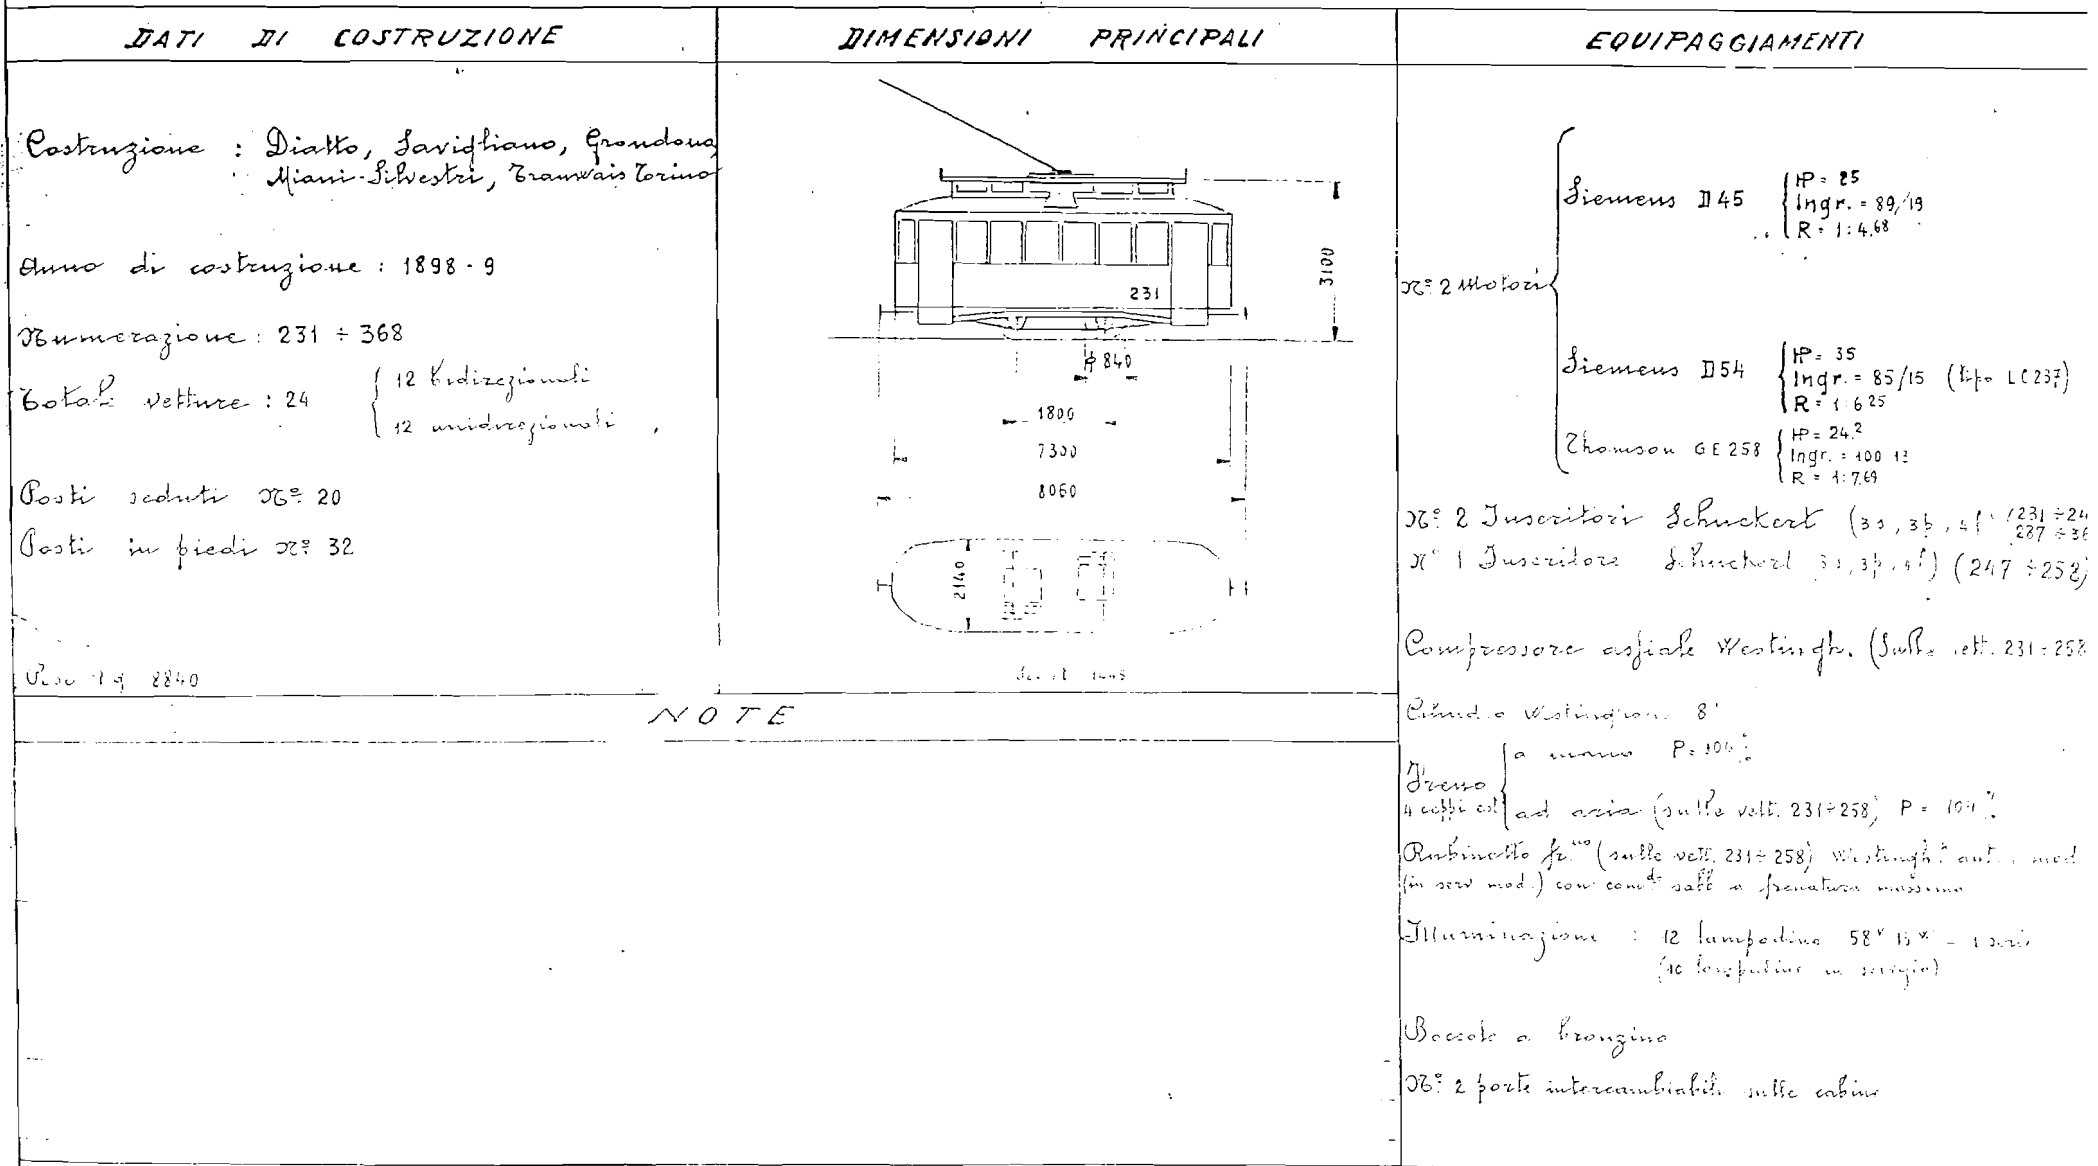 DATI DI COSTRUZIONE
Costruzione : Diatto, Savigliano, Grondona
Miani-Silvestri, Tramvais Torino
Anno di costruzione : 1898-9
Numerazione : 231 ÷ 368
Totale vetture : 24
12 bidirezionali
12 unidirezionali
Posti seduti N° 20
Posti in piedi N° 32
Peso 8840
DIMENSIONI PRINCIPALI
231
3100
ϕ 840
1800
7300
8060
2140
NOTE
EQUIPAGGIAMENTI
N° 2 Motori
Siemens D45
HP = 25
Ingr. = 89/19
R = 1:4,68
Siemens D54
HP = 35
Ingr. = 85/15 (tipo LC237)
R = 1:6 25
Thomson GE 258
HP = 24,2
Ingr. = 100 13
R = 1:7,69
N° 2 Inseritori Schuckert (3s, 3p, 4f) (231 ÷ 24
287 ÷ 36
N° 1 Inseritore Schuckert 3s, 3p, 4f) (247 ÷ 258)
Compressore assiale Westingh. (Sulle vett. 231 ÷ 258
8"
Freno
4 ceppi est
a mano P =
ad aria (sulle vett. 231 ÷ 258) P =
Rubinetto fr.no (sulle vett. 231 ÷ 258) Westingh.
(in serv mod.) con com.do sabb a frenatura massima
Illuminazione : 12 lampadine 58V 15W - 1 serie
(10 lampadine in servizio)
Boccole a bronzina
N° 2 porte intercambiabili sulle cabine